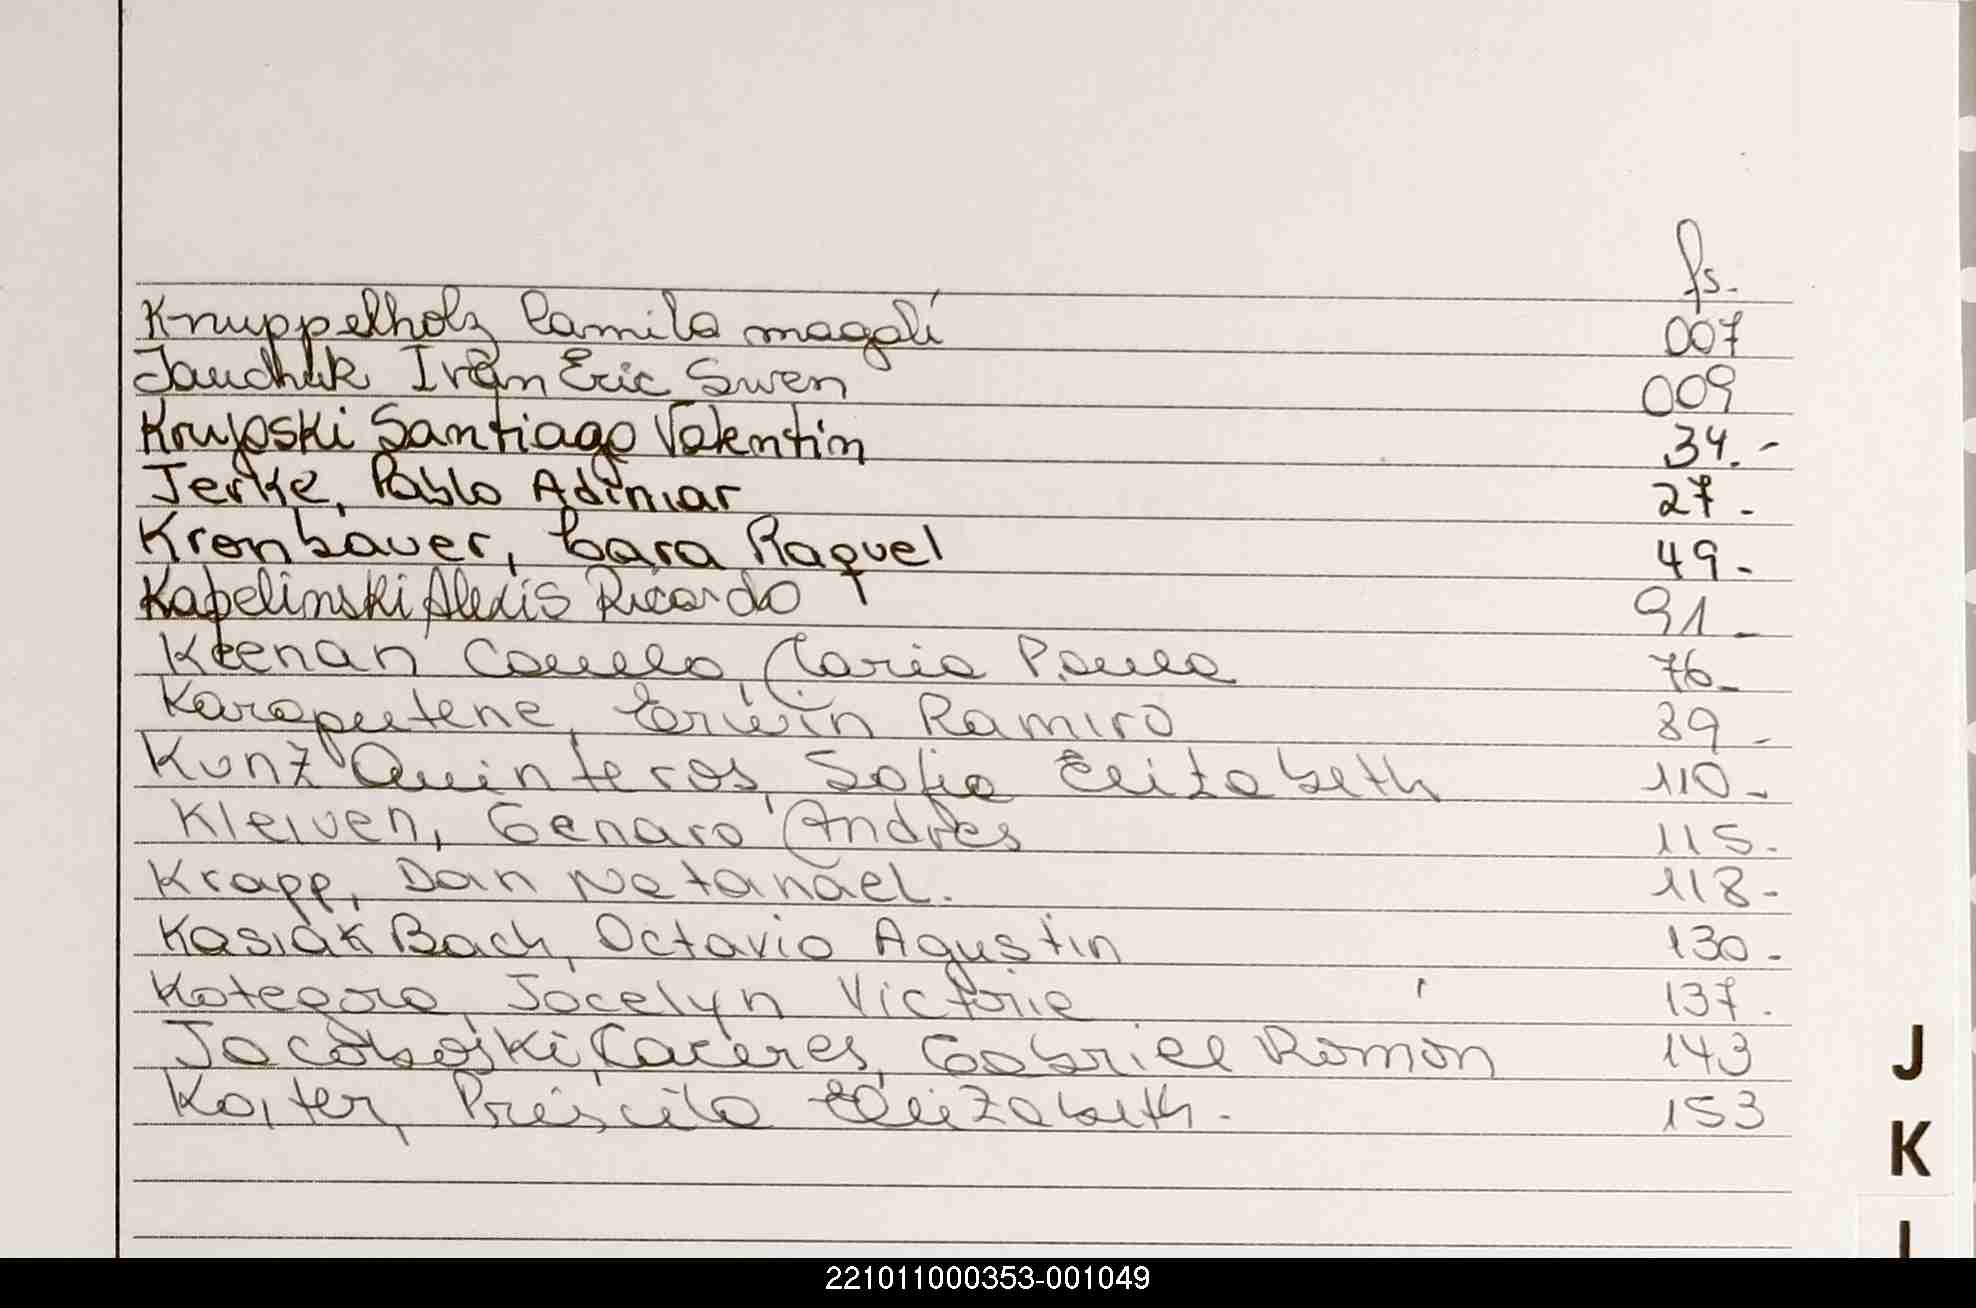 fs.
Knuppelholz Camila magalí 007
Jauchuk Iván Eric Swen 009
Krujoski Santiago Valentín 34.-
Jerke, Pablo Adimar 27-
Kronbauer, Sara Raquel 49-
Kapelinski Alexis Ricardo 91-
Keenan María Paula 76-
Karaputene, Erwin Ramiro 89-
Kunz Quinteros, Sofia Elizabeth 110-
Kleiven, Genaro Andrés 115.
Krapp, Dan Natanael. 118-
Kasiak Bach, Octavio Agustin 130-
Kategora, Jocelyn Victoria 137.
Jacoboski, Caceres, Gabriel Roman 143
Kaiter, Priscila Elizabeth. 153
J
K
221011000353-001049